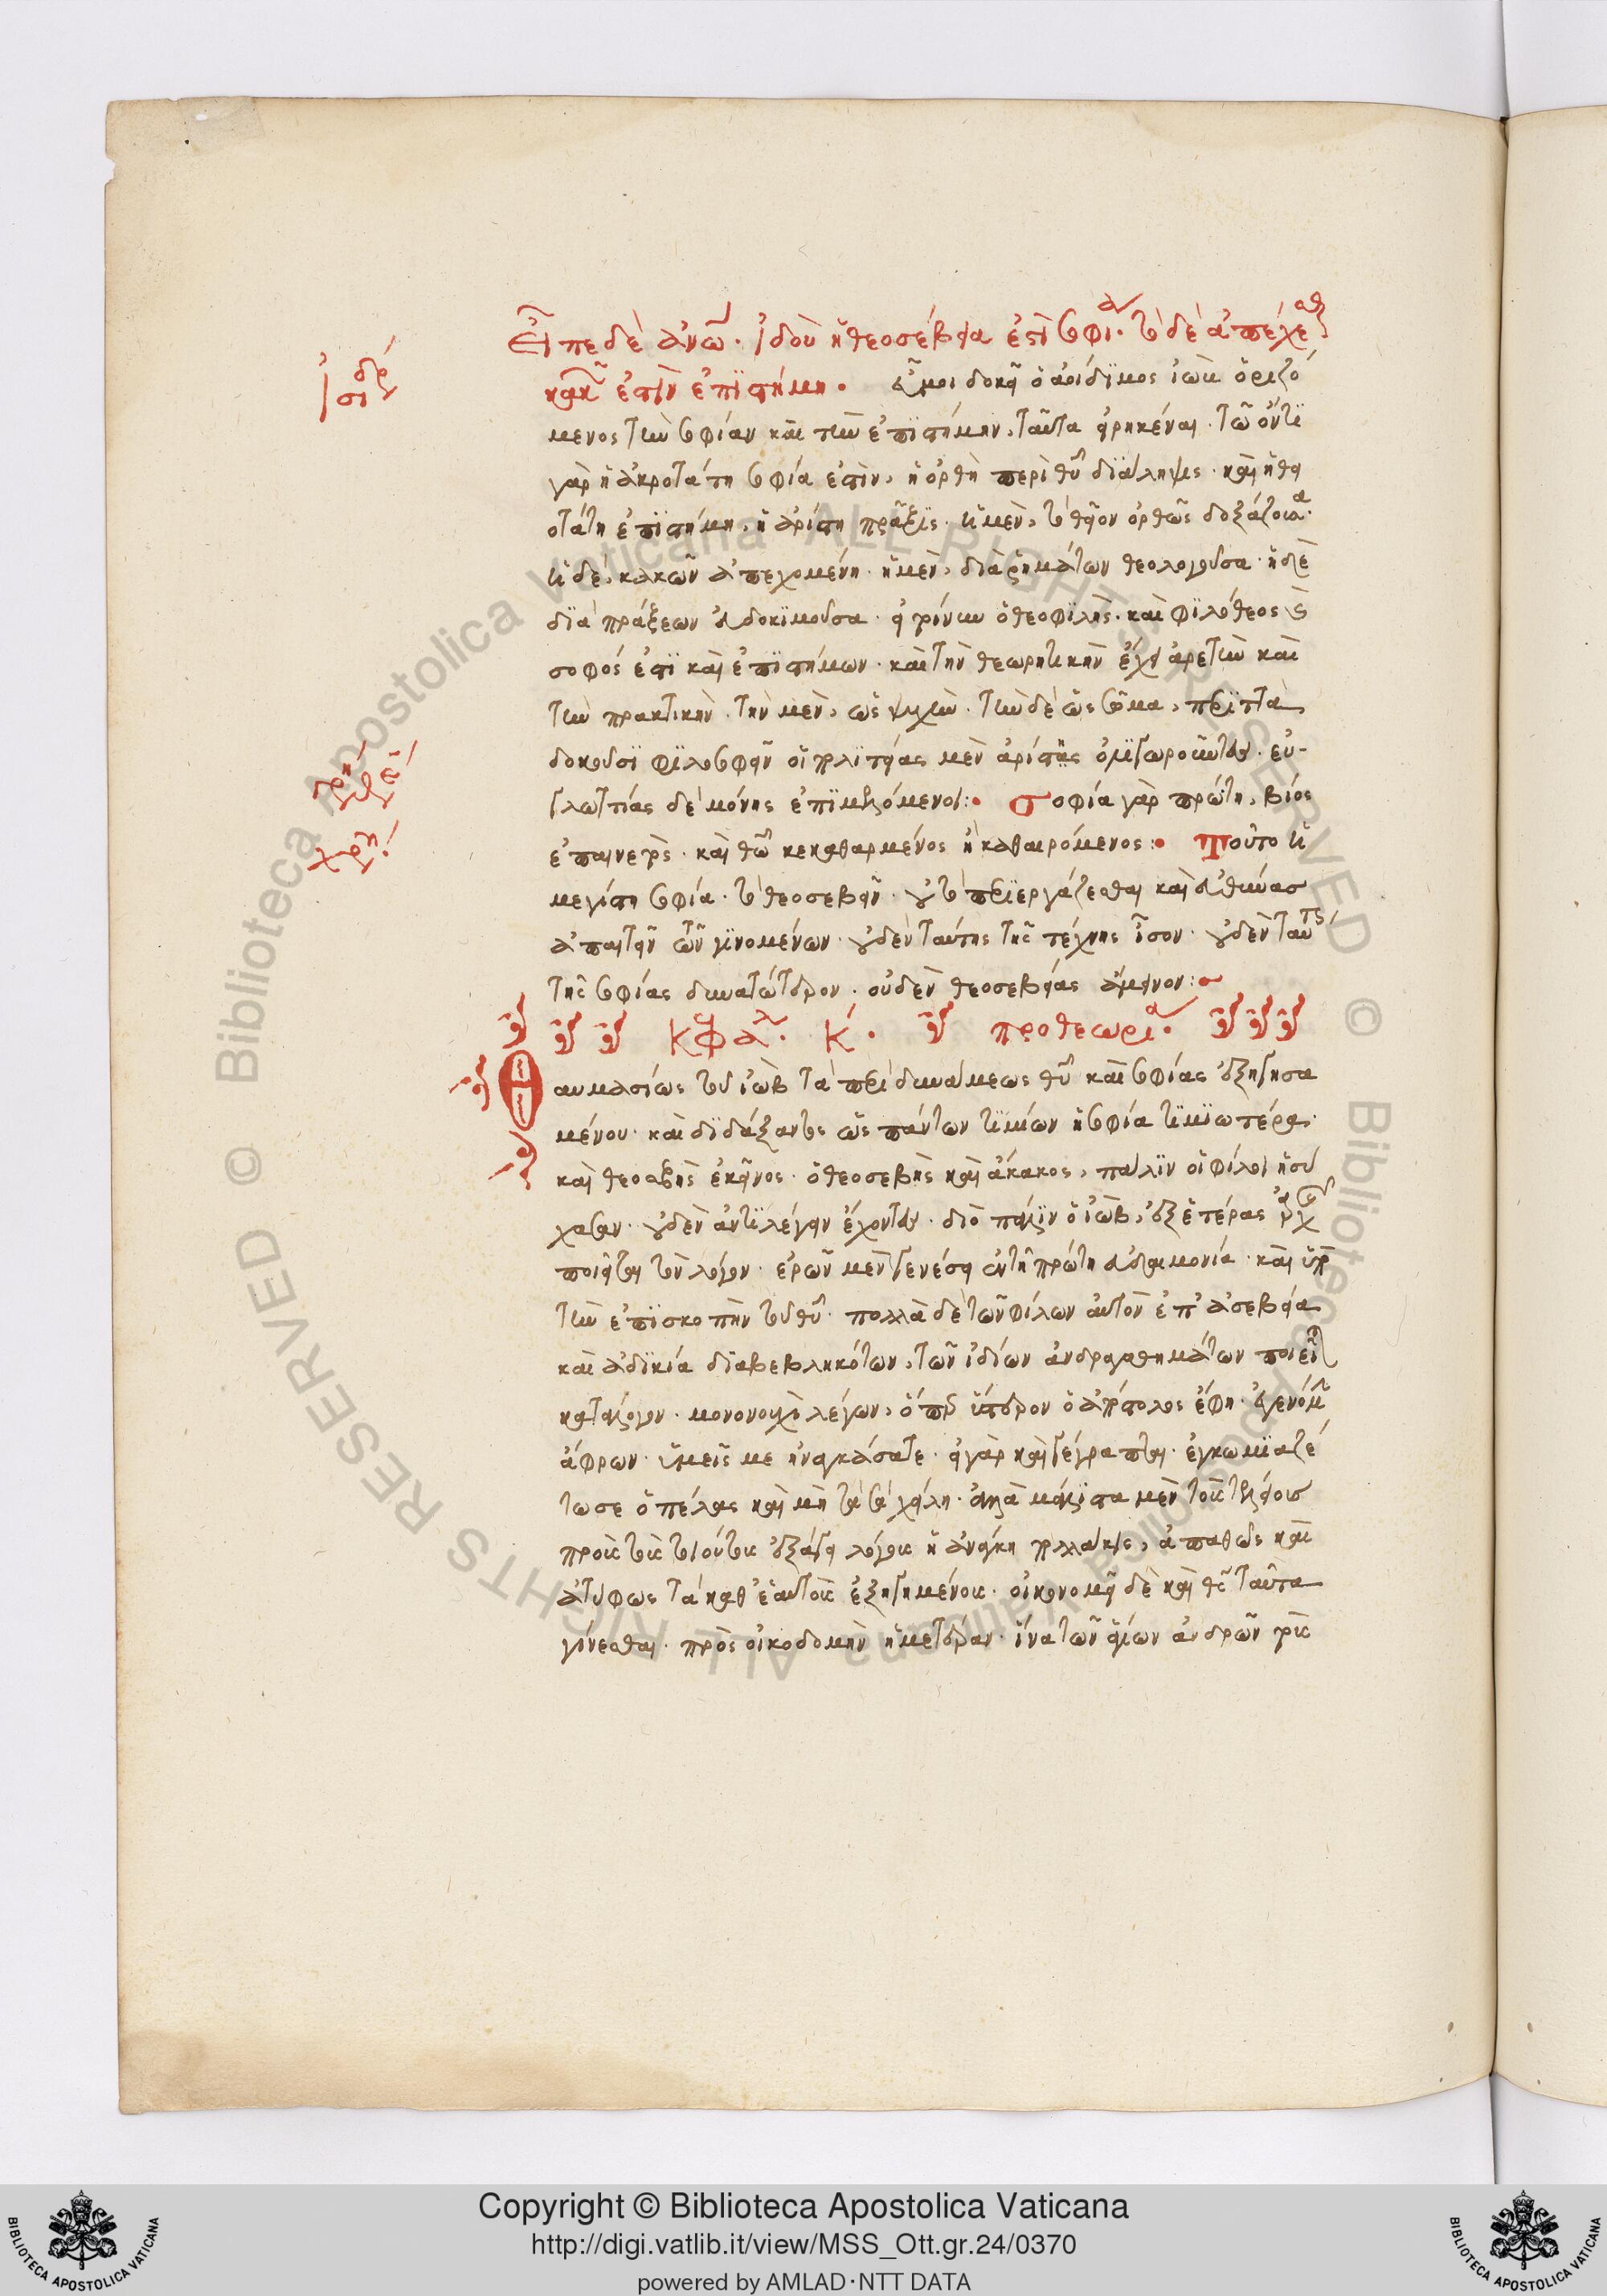 Εἶπε δὲ ἀνω. ἰδοὺ ἡ θεοσέβεια ἐστὶ σοφία. τὸ δὲ ἀπέχεσθαι
κακῶν ἐστὶν ἐπιστήμη. Ἐμοὶ δοκεῖ ὁ ἀοίδιμος ἰὼβ ὁριζό
Ἰσιδρ
μενος τὴν σοφίαν καὶ τὴν ἐπιστήμην, ταῦτα εἰρηκέναι. τῶ ὄντι
γὰρ ἡ ἀκροτάτη σοφία ἐστὶν, ἡ ὀρθὴ περὶ θυ διάληψις. καὶ ἡ θει
οτάτη ἐπιστήμη, ἡ ἀρίστη πρᾶξις. ἡ μὲν, τὸ θεῖον ὀρθῶς δοξάζουσα.
ἡ δὲ, κακῶν ἀπεχομένη. ἡ μὲν, διὰ ῥημάτων θεολογοῦσα. ἡ δὲ
διὰ πράξεων εὐδοκιμοῦσα. εἰ τοίνυν ὁ θεοφιλὴς. καὶ φιλόθεος
σοφός ἐστι καὶ ἐπιστήμων. καὶ τὴν θεωρητικὴν ἔχει ἀρετὴν καὶ
τὴν πρακτικήν. τὴν μὲν, ὡς ψυχὴν. τὴν δὲ ὡς σῶμα, περιττὰ
δοκοῦσι φιλοσοφεῖν οἱ πολιτείας μὲν ἀρίστης ὀλιγωροῦντες. εὐ-
γλωττίας δὲ μόνης ἐπιμελόμενοι: Σοφία γὰρ πρώτη, βίος
ἐπαινετὸς. καὶ θῶ κεκαθαρμένος ἢ καθαιρόμενος: Τοῦτο ἡ
μεγίστη σοφία. τὸ θεοσεβεῖν. οὐ τὸ περιεργάζεσθαι καὶ εὐθύνας
ἀπαιτεῖν τῶν γινομένων. οὐδὲν ταύτης τῆς τέχνης ἴσον. οὐδὲν ταύτης
τῆς σοφίας δυνατώτερον. οὐδὲν θεοσεβείας ἄμεινον:
Κεφαλ. κ. προθεωρία.
Θαυμασίως τοῦ ἰὼβ τὰ περὶ δυνάμεως θυ καὶ σοφίας ἐξηγησα
μένου. καὶ διδάξαντος ὡς πάντων τιμίων ἡ σοφία τιμιωτέρα.
καὶ θεοσεβὴς ἐκεῖνος. ὁ θεοσεβὴς καὶ ἄκακος, πάλιν οἱ φίλοι ἡσύ
χασαν. οὐδὲν ἀντιλέγειν ἔχοντες. διὸ πάλιν ὁ ἰὼβ, ἐξ ἑτέρας ἀρχῆς
ποιεῖται τὸν λόγον. ἐρῶν μὲν γενέσθαι ἐν τῇ πρώτη εὐδαιμονία. καὶ ὑπὸ
τὴν ἐπισκοπὴν τοῦ θυ. πολλὰ δὲ τῶν φίλων αὐτὸν ἐπ' ἀσεβεία
καὶ ἀδικία διαβεβληκότων, τῶν ἰδίων ἀνδραγαθημάτων ποιεῖται
κατάλογον. μονονουχὶ λέγων, ὅπερ ὕστερον ὁ ἀπόστολος ἔφη. γέγονα
ἄφρων. ὑμεῖς με ἠναγκάσατε. εἰ γὰρ καὶ γέγραπται. ἐγκωμιαζέ
τω σε ὁ πέλας καὶ μὴ τὰ σὰ χείλη. ἀλλὰ μάλιστα μὲν τοῖς τελείοις
πρὸς τοὺς τοιούτους ἐξάγει λόγους ἡ ἀνάγκη πολλάκις, ἀπαθῶς καὶ
ἀτύφως τὰ καθ' ἑαυτοὺς ἐξηγημένοις. οἰκονομεῖ δὲ καὶ θς ταῦτα
γίνεσθαι. πρὸς οἰκοδομὴν ἡμετέραν. ἵνα τῶν ἁγίων ἀνδρῶν τοὺς
Copyright © Biblioteca Apostolica Vaticana
http://digi.vatlib.it/view/MSS_Ott.gr.24/0370
powered by AMLAD·NTT DATA